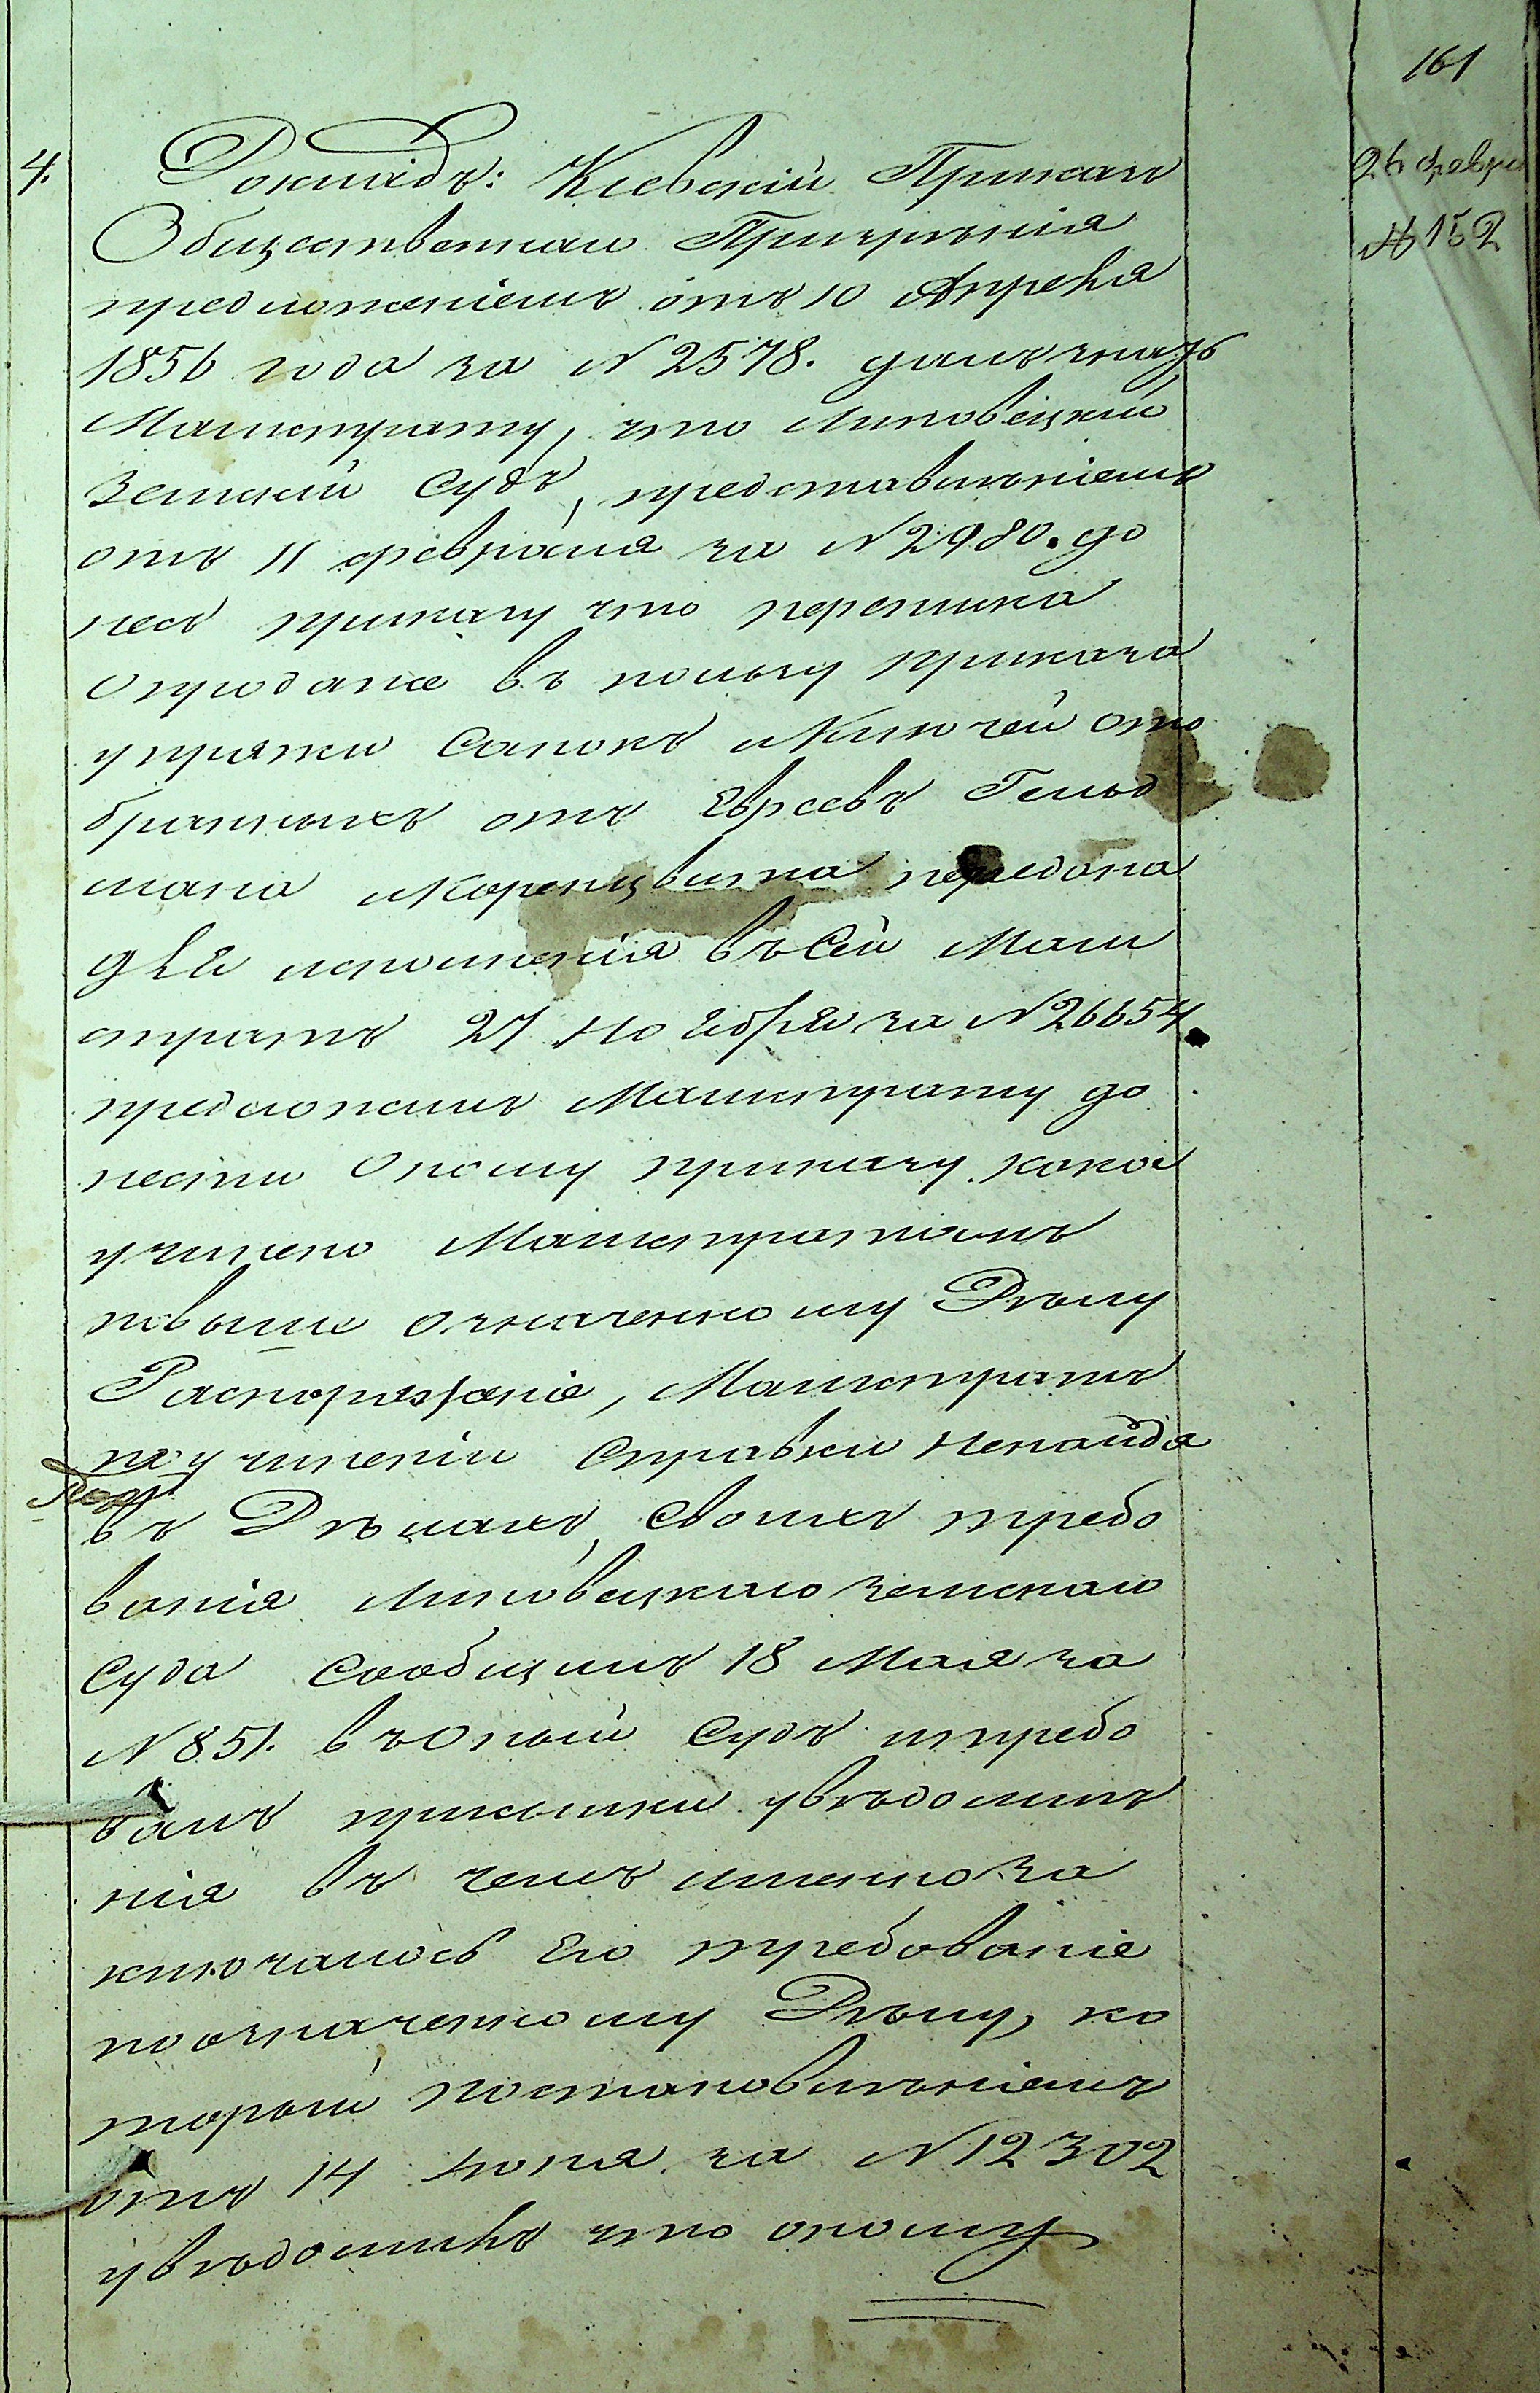 161
26 февра
№ 152
4.
Докладъ: Кіевскій Приказъ
Общественнаи Призрѣнія
предложеніемъ отъ 10 Апреля
1856 года за N 2578. далъ знать
Магистрату, что Липовецкій
Земскій Судъ, представленіемъ
отъ 11 февраля за N 2980. до
несъ приказу что переписка
о продаже въ пользу приказа
упряжи Санокъ и Ключей ото
бранныхъ отъ Евреевъ Гельд
мана и Коренцвита передана
для исполненія въ Сей Маги
стратъ 27 Ноября за N 26654
предложилъ Магистрату до
нести Оному приказу какое
учинено Магистратомъ
по выше означенному Дѣлу
Распоряженіе, Магистратъ
по учиненіи Справки Ненайдя
въ Дѣлахъ Своихъ требо
ванія Липовецкаго земскаго
Суда Сообщилъ 18 Мая за
N 851. въ Оный Судъ и требо
валъ присылки увѣдомлѣ
нія въ чемъ именно за
ключалось Его требованіе
по означенному Дѣлу, ко
торый постановлѣніемъ
отъ 14 Іюня за N 12302
увѣдомилъ что оному